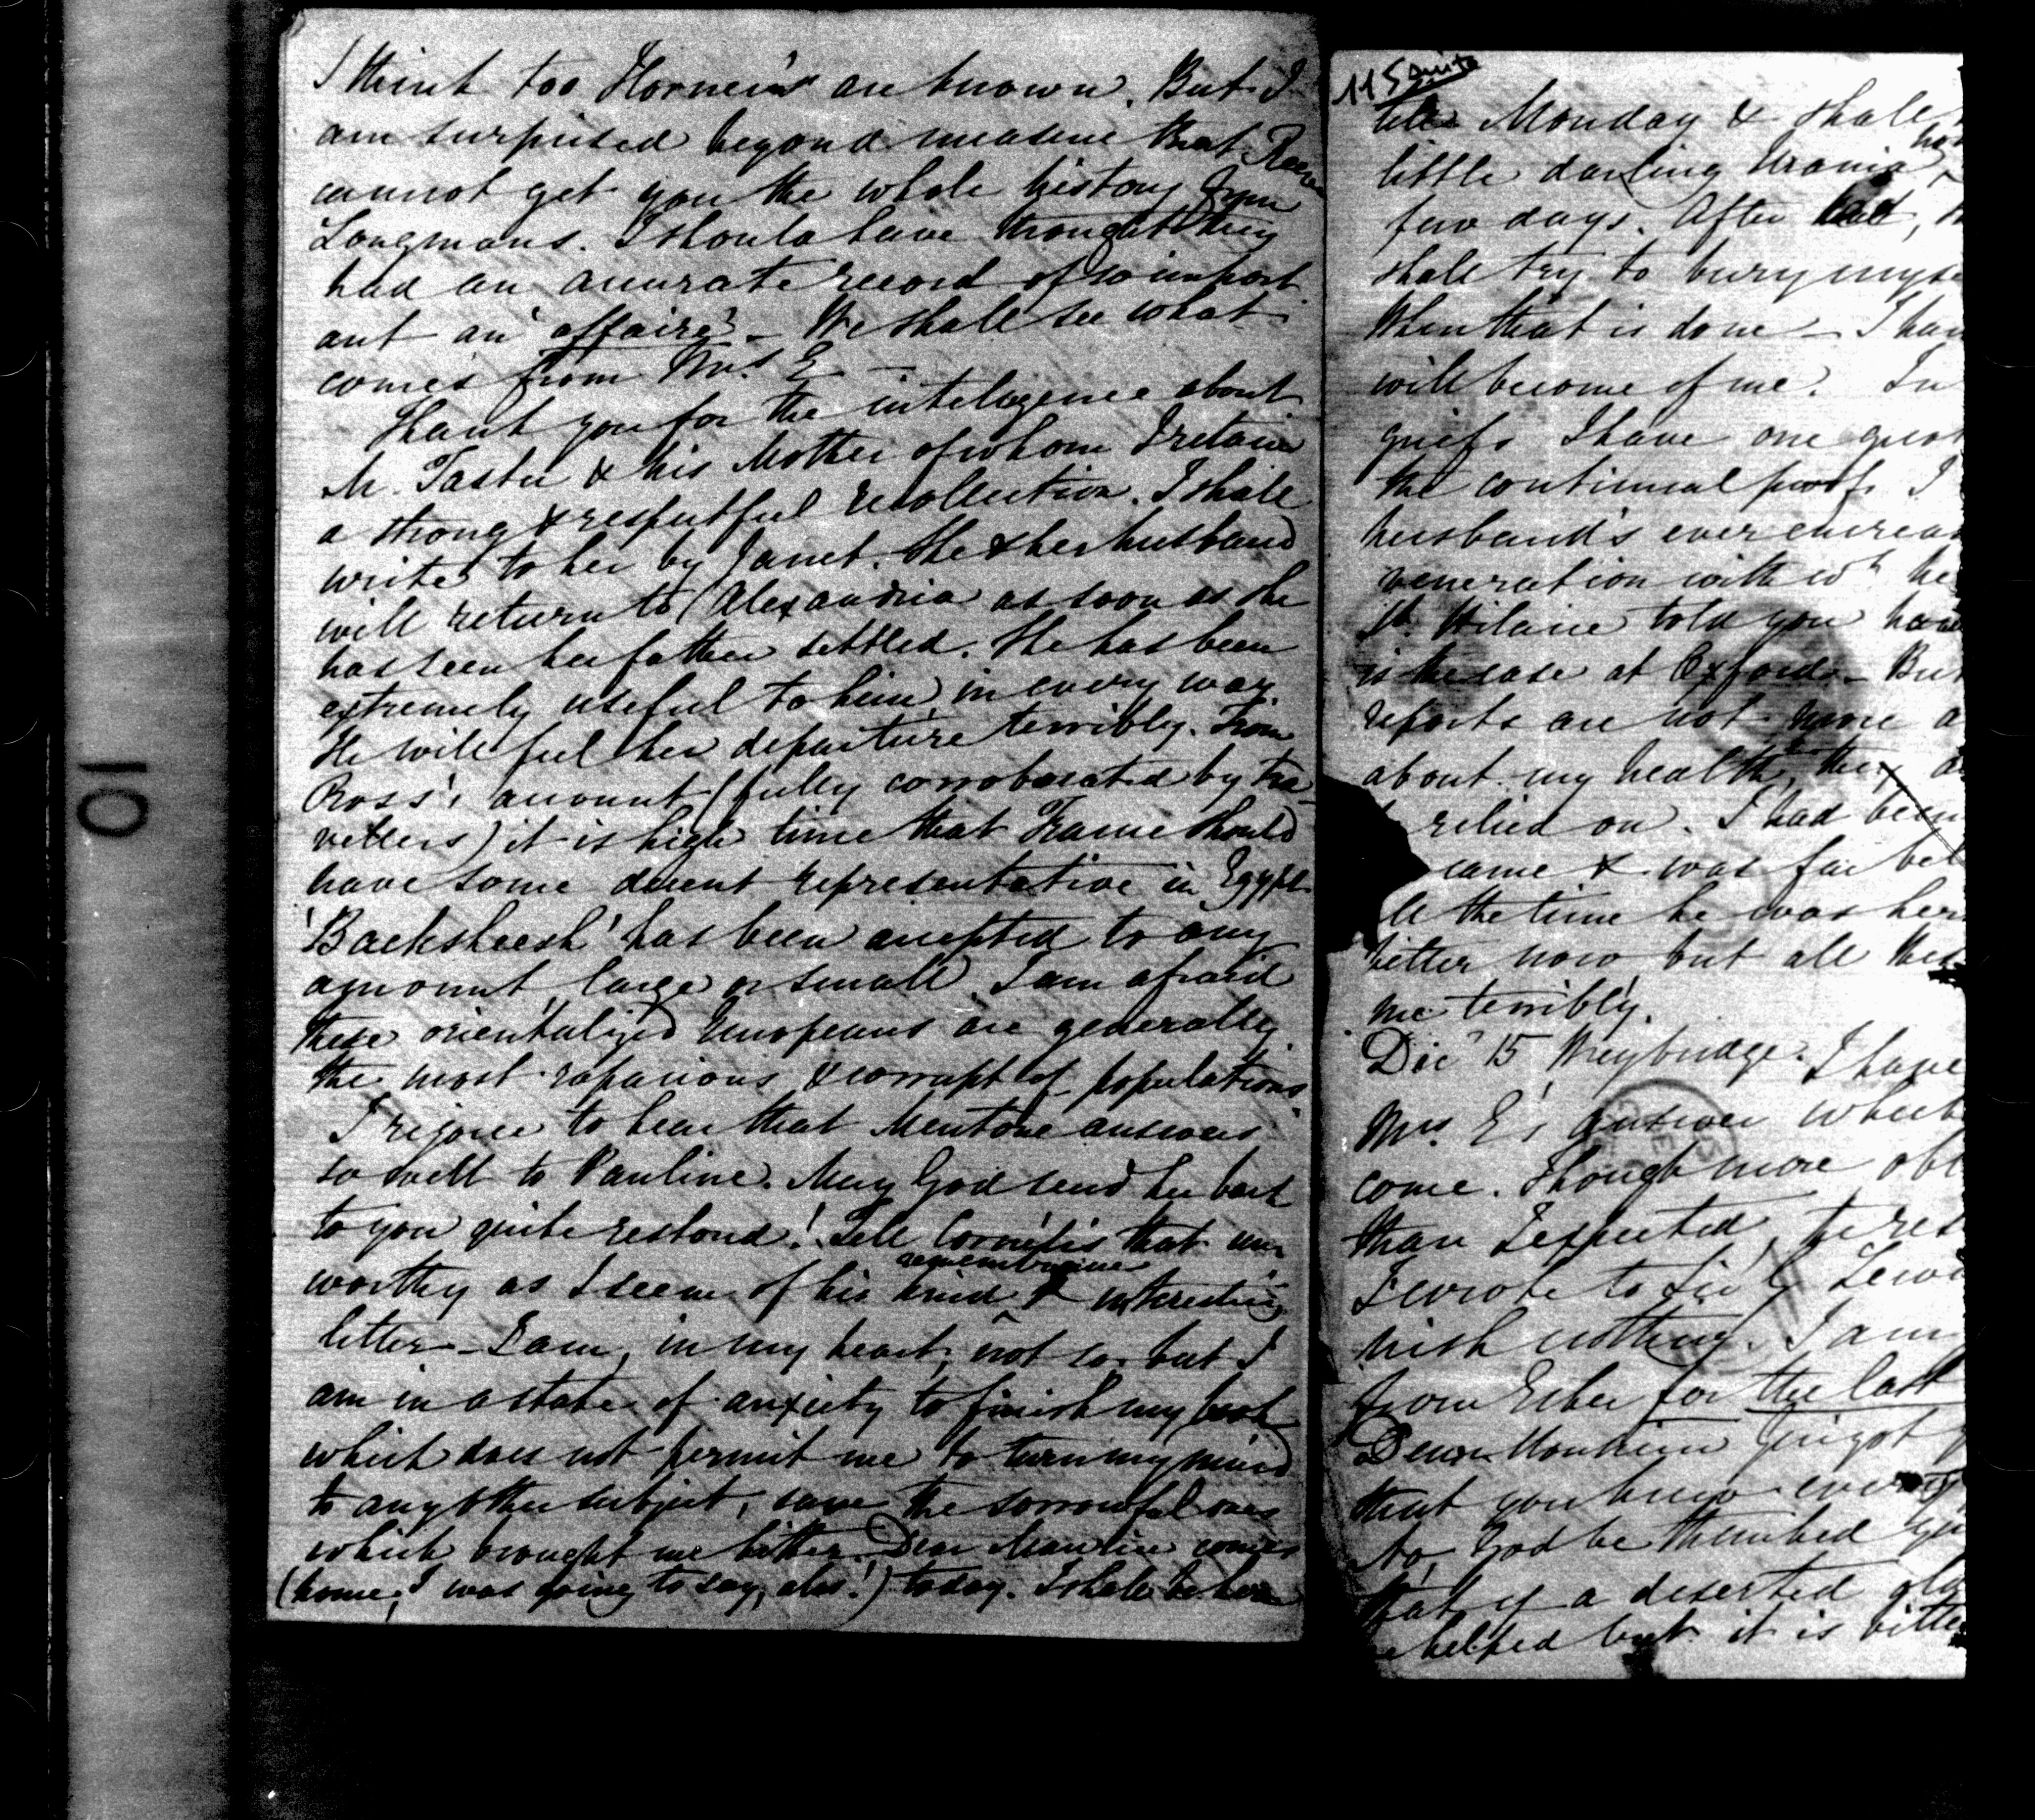 I think too Horner's are known. But I
am surprised beyond measure that Reeve
cannot get you the whole history from
Longmans. I should have thought they
had an accurate record of so import
ant an "affaire" – We shall see what
comes from Mrs. E –
Thank you for the intelligence about
M. Tastu & his Mother of whom I retain
a strong & respectful recollection. I shall
write to her by Janet. She & her husband
will return to Alexandria as soon as she
has seen her father settled. She has been
extremely useful to him in every way.
He will feel her departure terribly. From
Ross's account (fully corroborated by tra
vellers) it is high time that France should
have some decent representative in Egypt
'Backsheesh' has been accepted to any
amount, large or small. I am afraid
these orientalized Europeans are generally
the most rapacious & corrupt of populations
I rejoice to hear that Mentone answers
so well to Pauline. May God send her back
to you quite restored! Tell Cornélis that un
worthy as I seem of his kind remembrance & interesting
letter – I am, in my heart, not so but I
am in a state of anxiety to finish my book
which does not permit me to turn my mind
to any other subject, save the sorrowful ones
which brought me hither. Dear Maurice comes
(home, I was going to say, alas!) today. I shall be here
115 suite
till Monday & shall
little darling Urania
few days. After that,
shall try to bury myse
When that is done – I have
will become of me. In
griefs I have one great
the continual proofs I
husband's ever increas
veneration with wh. he
St. Hilaire told you how
is the case at Oxford – But
reports are not more a
about my health, they
relied on. I had been
came & was far bet
the time he was here
better now but all this
me terribly.
Dec 15 Weybridge. I have
Mrs. E's answer which
come. Though more obl
than I expected, he res
I wrote to Sir G Lewi
nish nothing. I am
from Esher for the last
that you know every
God be thanked you
that of a deserted old
helped but it is bitte
10